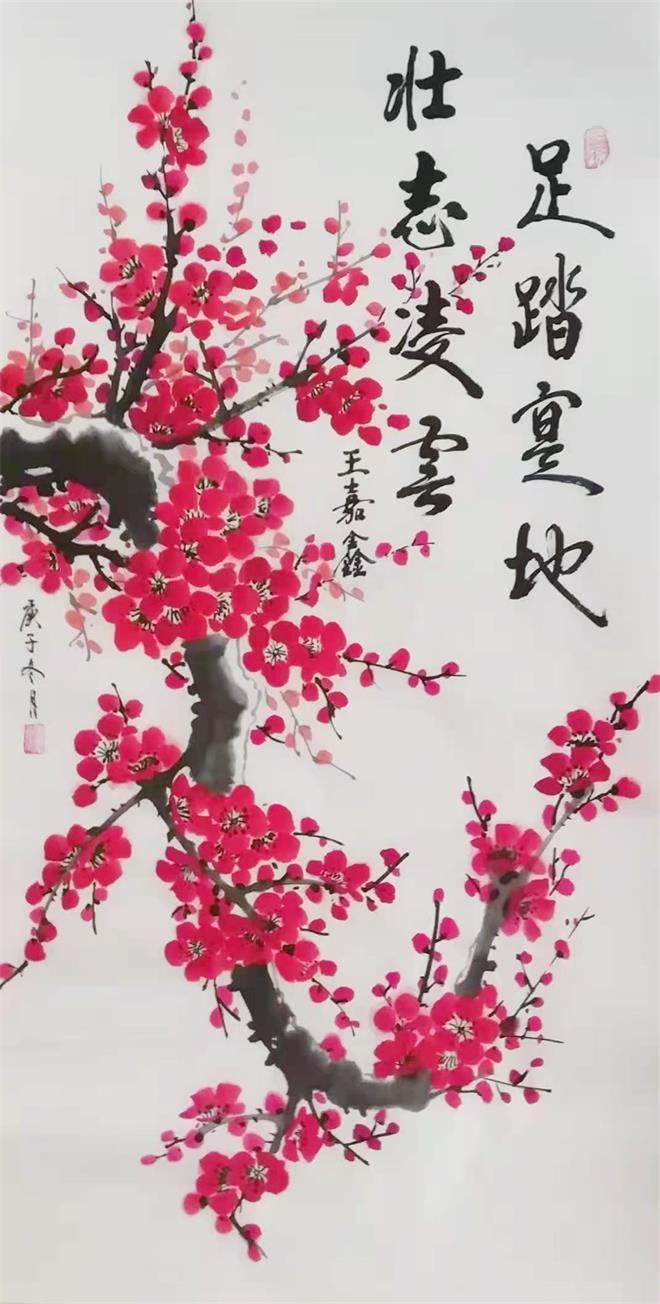 足踏寔地
壮志凌雲
王嘉鑫
庚子冬月